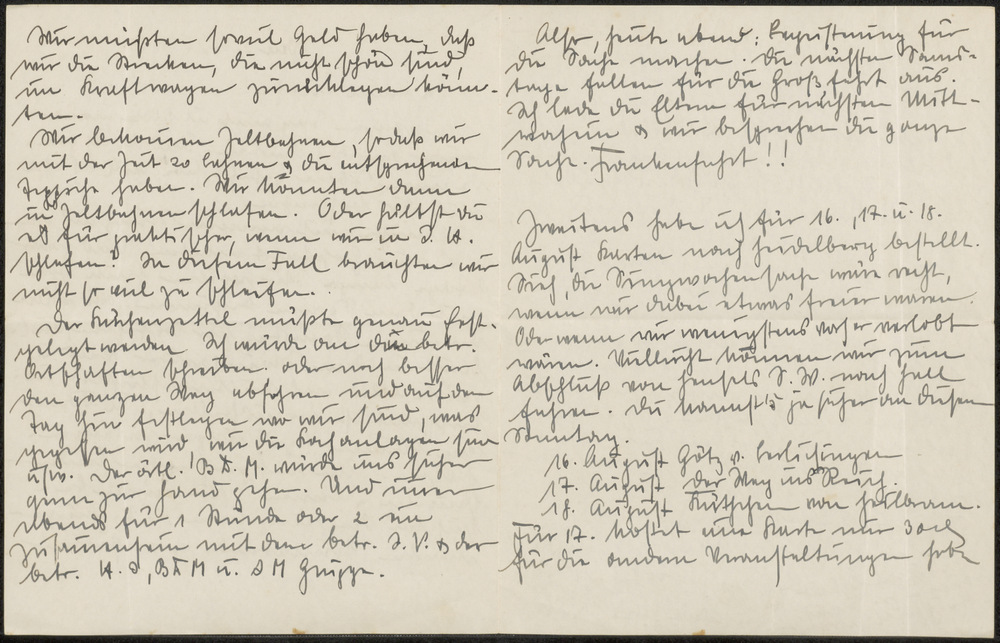 Wir müßten soviel Geld haben, daß
wir die Strecken, die nicht schön sind,
im Kraftwagen zurücklegen könn-
ten.
Wir bekommen Zeltbahnen, sodaß wir
mit der Zeit 20 & die entsprechenden
Teppiche haben. Wir könnten dann
in Zeltbahnen schlafen. Oder hältst du
es für praktischer, wenn wir in J. H.
schlafen? In diesem Fall brauchten wir
nicht so viel zu schleifen.
Der Küchenzettel müßte genau fest-
gelegt werden. Ich würde an die betr.
Ortschaften schreiben. oder noch besser
den ganzen Weg abfahren und auf den
Tag hin festlegen wo wir sind, was
gegessen wird, wie die Kochanlagen sind
usw. Der örtl. B.D.M. würde uns sicher
gerne zur Hand gehen. Und immer
abends für 1 Stunde oder 2 ein
Zusammensein mit dem betr. J.V. & der
betr. H.J, BDM u. JM Gruppe.
Also, heute abend: Begeisterung für
die Sache machen. Die nächsten Sams-
tage fallen für die Großfahrt aus.
Ich lade die Eltern für nächsten Mitt-
woch ein & wir besprechen die ganze
Sache. Frankenfahrt!!
Zweitens habe ich für 16., 17. u. 18.
August Karten nach Heidelberg bestellt.
Sieh, die Singwochensache wäre recht,
wenn wir dabei etwas freier wären.
Oder wenn wir wenigstens vorher verlobt
wären. Vielleicht können wir zum
Abschluß von Hensels S.W. nach Hall
fahren. Du kannst's ja sicher an diesem
Sonntag.
16. August Götz v. Berlichingen
17. August Der Weg ins Reich.
18. August Käthchen von Heilbronn.
Für 17. kostet eine Karte nur 30
für die andern Veranstaltungen habe